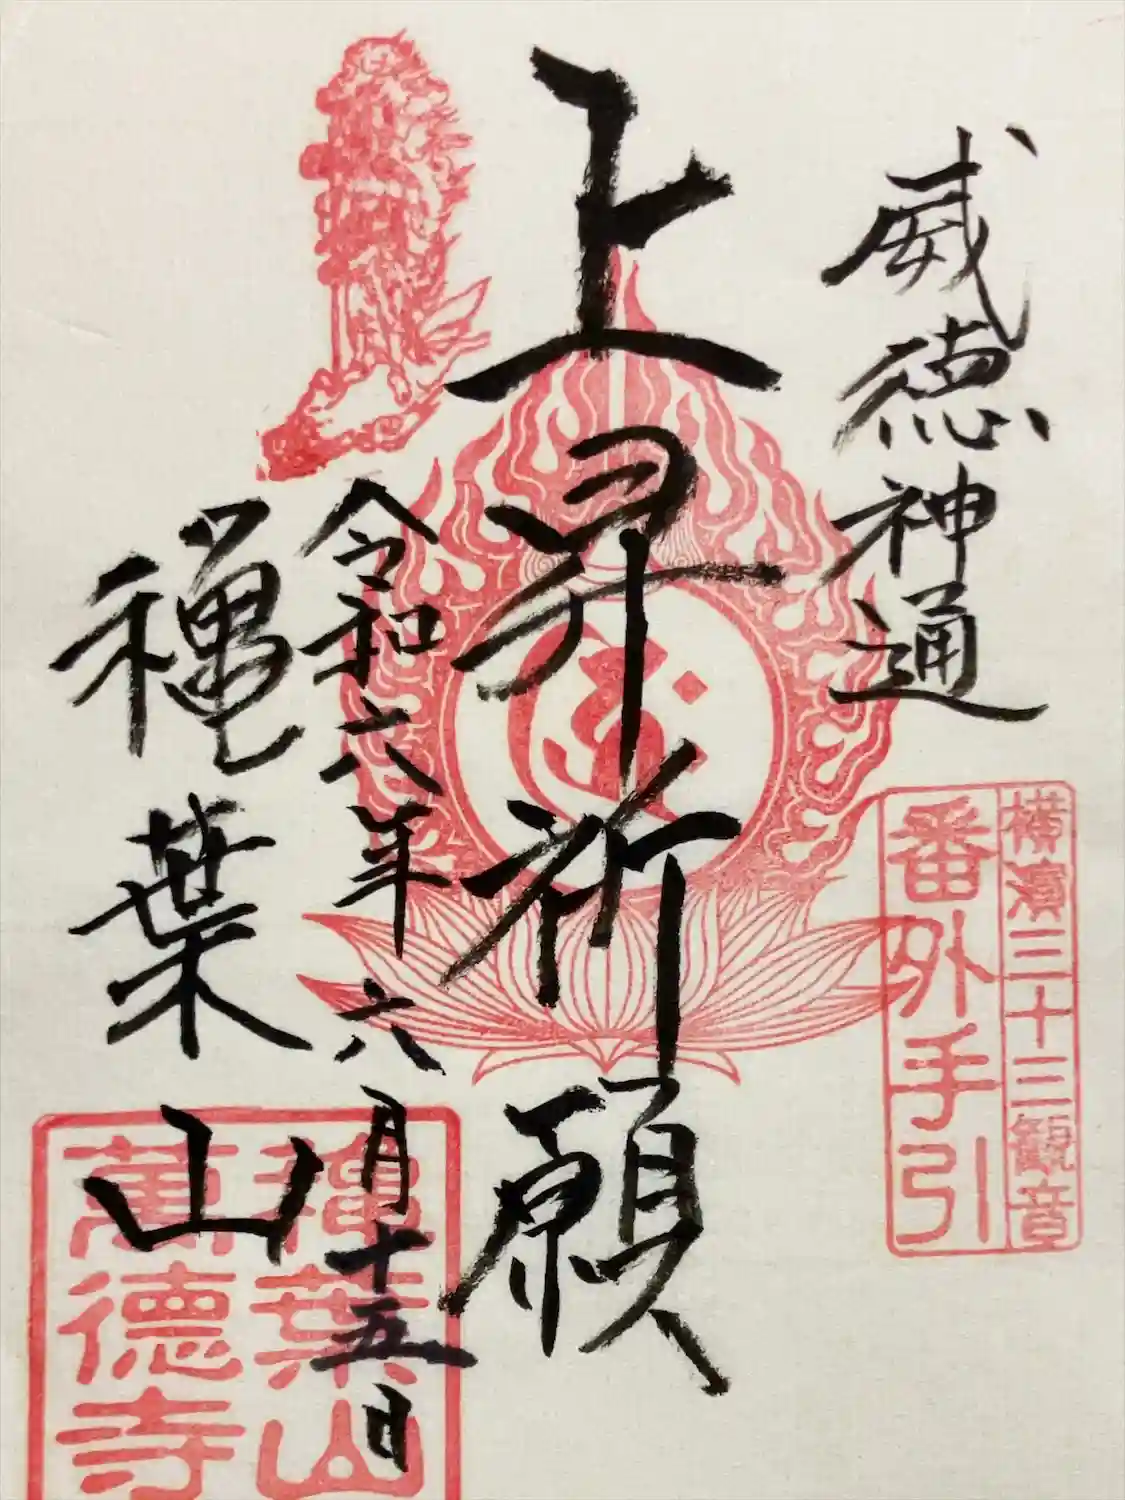 威徳神通
横濱三十三観音
番外手引
上昇祈願
令和六年六月十五日
穐葉山
葉山
萬德寺